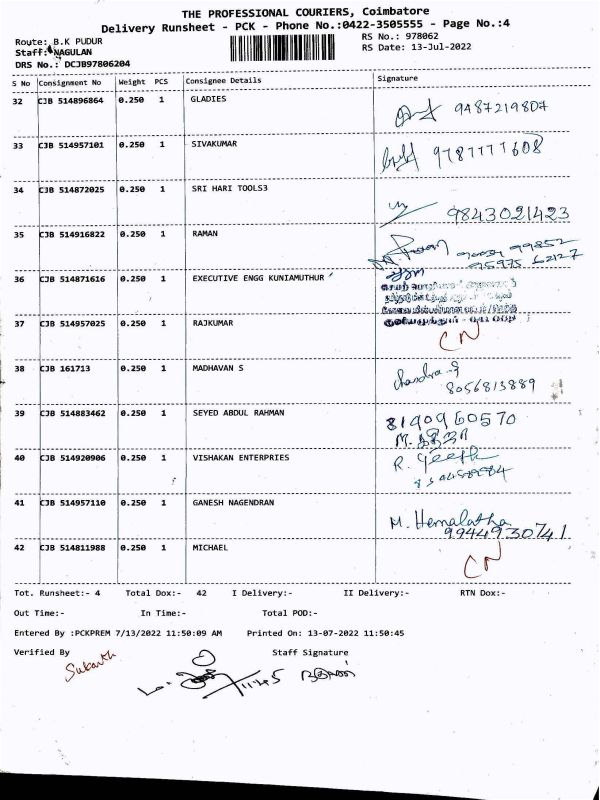 THE PROFESSIONAL COURIERS, Coimbatore
Delivery Runsheet - PCK - Phone No.:0422-3505555 - Page No.:4
Route: B.K PUDUR
RS No.: 978062
Staff: NAGULAN
RS Date: 13-Jul-2022
DRS No.: DCJB97806204
S No Consignment No Weight PCS Consignee Details Signature
32 CJB 514896864 0.250 1 GLADIES 9487219807
33 CJB 514957101 0.250 1 SIVAKUMAR 9787777608
34 CJB 514872025 0.250 1 SRI HARI TOOLS3 9843021423
35 CJB 514916822 0.250 1 RAMAN 99852
95975 62127
36 CJB 514871616 0.250 1 EXECUTIVE ENGG KUNIAMUTHUR
37 CJB 514957025 0.250 1 RAJKUMAR CN
38 CJB 161713 0.250 1 MADHAVAN S Chandra
8056813889
39 CJB 514883462 0.250 1 SEYED ABDUL RAHMAN 8190960570
40 CJB 514920906 0.250 1 VISHAKAN ENTERPRIES R. Geetha
41 CJB 514957110 0.250 1 GANESH NAGENDRAN M. Hemalatha
9944930741
42 CJB 514811988 0.250 1 MICHAEL CN
Tot. Runsheet:- 4 Total Dox:- 42 I Delivery:- II Delivery:- RTN Dox:-
Out Time:- In Time:- Total POD:-
Entered By :PCKPREM 7/13/2022 11:50:09 AM Printed On: 13-07-2022 11:50:45
Verified By Staff Signature